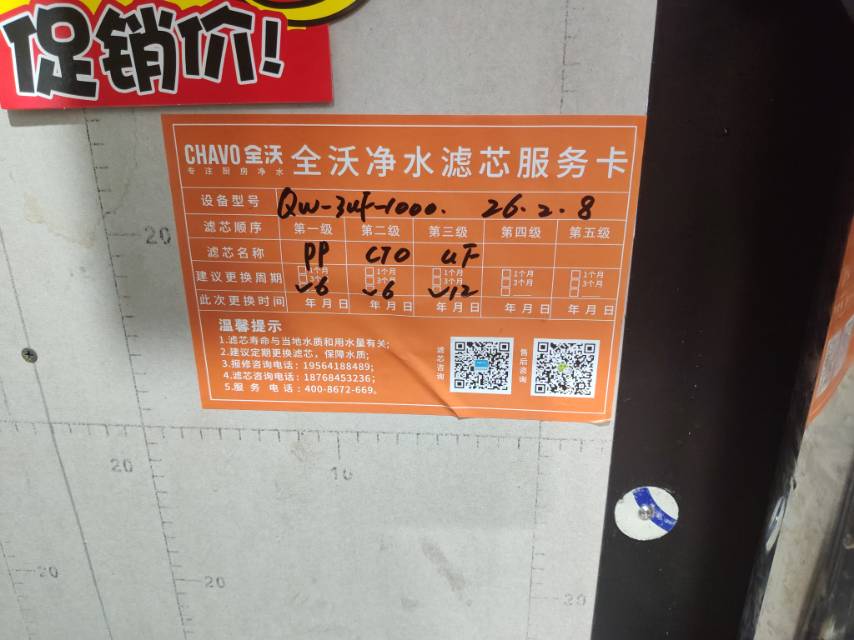 促销价!
CHAVO 全沃 全沃净水滤芯服务卡
专注厨房净水
设备型号 QW-3uf-1000. 26.2.8
滤芯顺序 第一级 第二级 第三级 第四级 第五级
滤芯名称 PP CTO UF
建议更换周期 1个月 1个月 1个月 1个月 1个月
3个月 3个月 3个月 3个月
6 6 12
此次更换时间 年 月 日 年 月 日 年 月 日 年 月 日 年 月 日
温馨提示
1.滤芯寿命与当地水质和用水量有关;
2.建议定期更换滤芯,保障水质;
3.报修咨询电话:19564188489;
4.滤芯咨询电话:18768453236;
5.服务电话:400-8672-669。
滤芯咨询
售后咨询
20
20
10
20
20
30